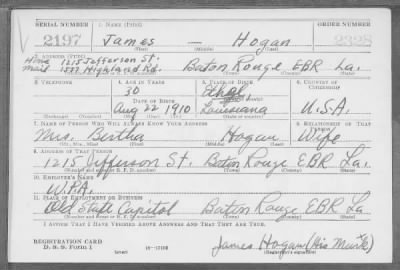 SERIAL NUMBER 1. NAME (Print) ORDER NUMBER
2197 James Hogan 2328
(First) (Middle) (Last)
2. ADDRESS (Print)
Home 1215 Jefferson St.
Mail 1577 Highland Rd. Baton Rouge EBR La.
(Town) (County) (State)
3. TELEPHONE 4. AGE IN YEARS 5. PLACE OF BIRTH 6. COUNTRY OF CITIZENSHIP
30 Ethel
DATE OF BIRTH (Town or county)
Aug 22 1910 Louisiana U.S.A.
(Exchange) (No.) (Mo.) (Day) (Yr.) (State or country)
7. NAME OF PERSON WHO WILL ALWAYS KNOW YOUR ADDRESS 8. RELATIONSHIP OF THAT PERSON
Mrs. Bertha Hogan Wife
(Mr., Mrs., Miss) (First) (Middle) (Last)
9. ADDRESS OF THAT PERSON
1215 Jefferson St. Baton Rouge EBR La.
(Number and street or R. F. D. number) (Town) (County) (State)
10. EMPLOYER'S NAME
W.P.A.
11. PLACE OF EMPLOYMENT OR BUSINESS
Old State Capitol Baton Rouge EBR La
(Number and street or R. F. D. number) (Town) (County) (State)
I AFFIRM THAT I HAVE VERIFIED ABOVE ANSWERS AND THAT THEY ARE TRUE.
REGISTRATION CARD
D. S. S. Form 1 (over) James Hogan (His X Mark)
(Registrant's signature)